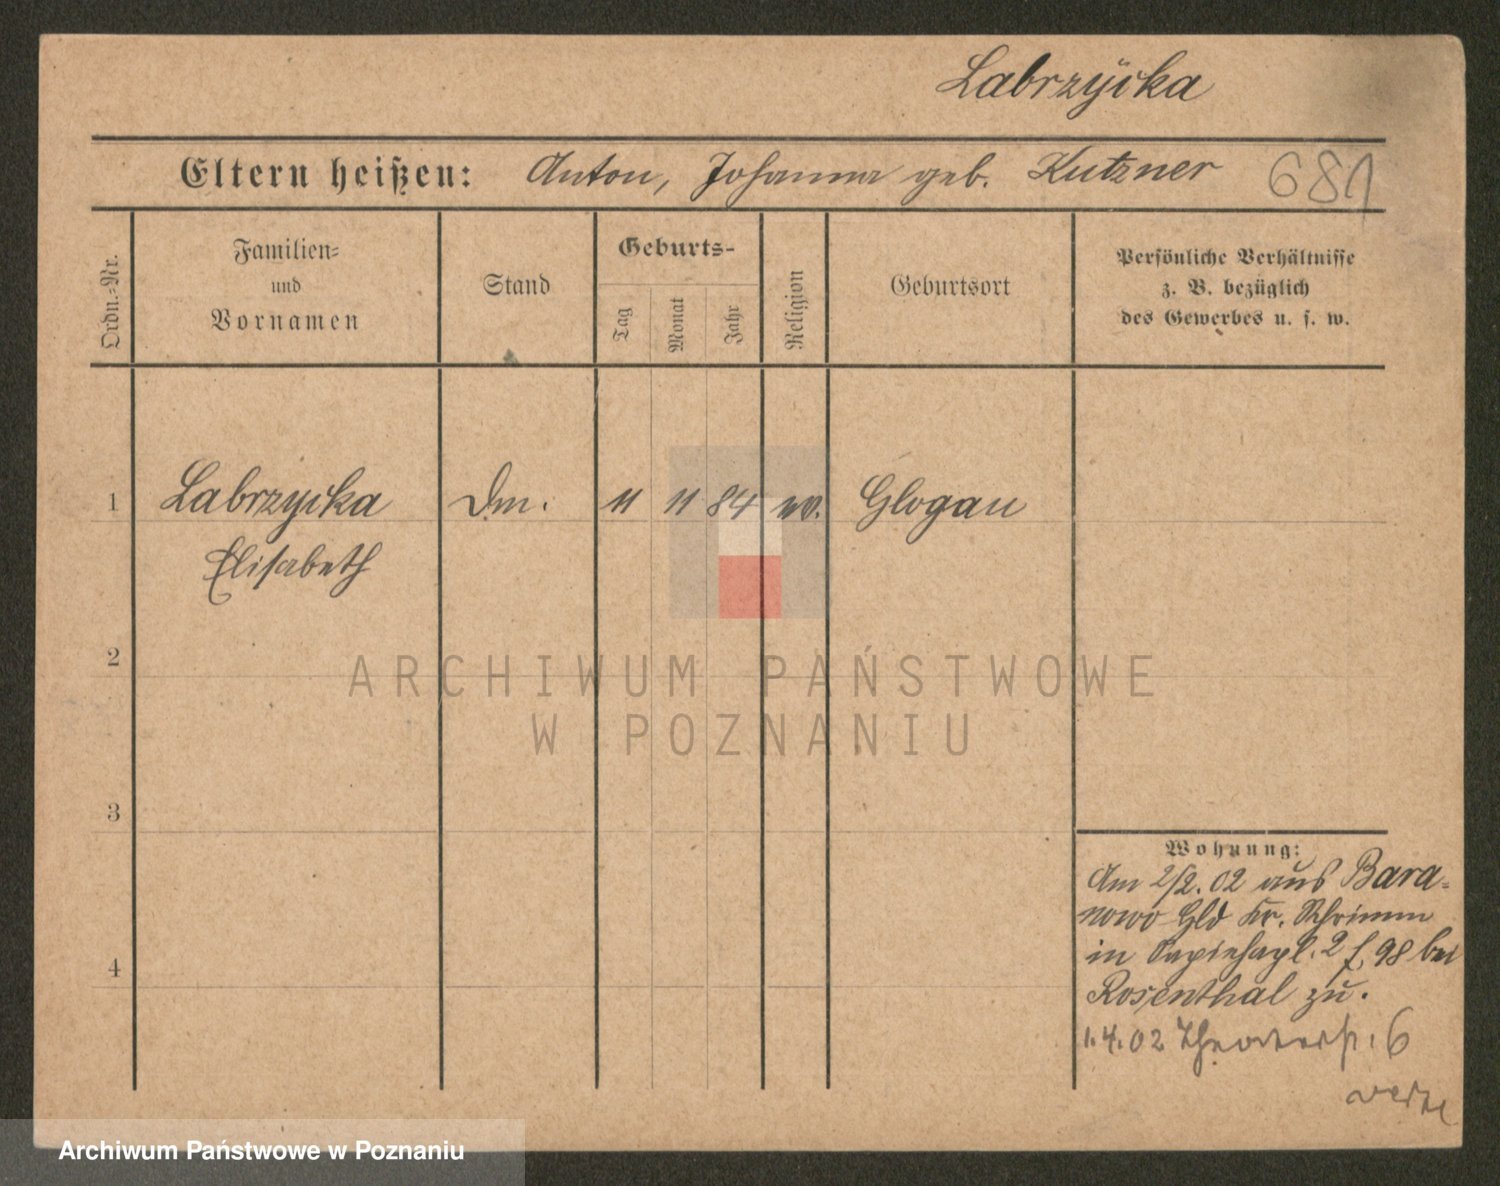 Labrzÿcka
Eltern heißen: Anton, Johanna geb. Kutzner 681
Ordn.-Nr.
Familien-
und
Vornamen
Stand
Geburts-
Tag
Monat
Jahr
Religion
Geburtsort
Persönliche Verhältnisse
z. B. bezüglich
des Gewerbes u. s. w.
1 Labrzycka Dm. 11 11 84 ev. Glogau
Elisabeth
2
3
4
ARCHIWUM PAŃSTWOWE
W POZNANIU
Wohnung:
Am 2/2. 02 aus Bara-
nowo Gld Kr. Schrimm
in Sapiehapl. 2 f. 98 bei
Rosenthal zu.
1.4.02 Theaterstr. 6
Archiwum Państwowe w Poznaniu